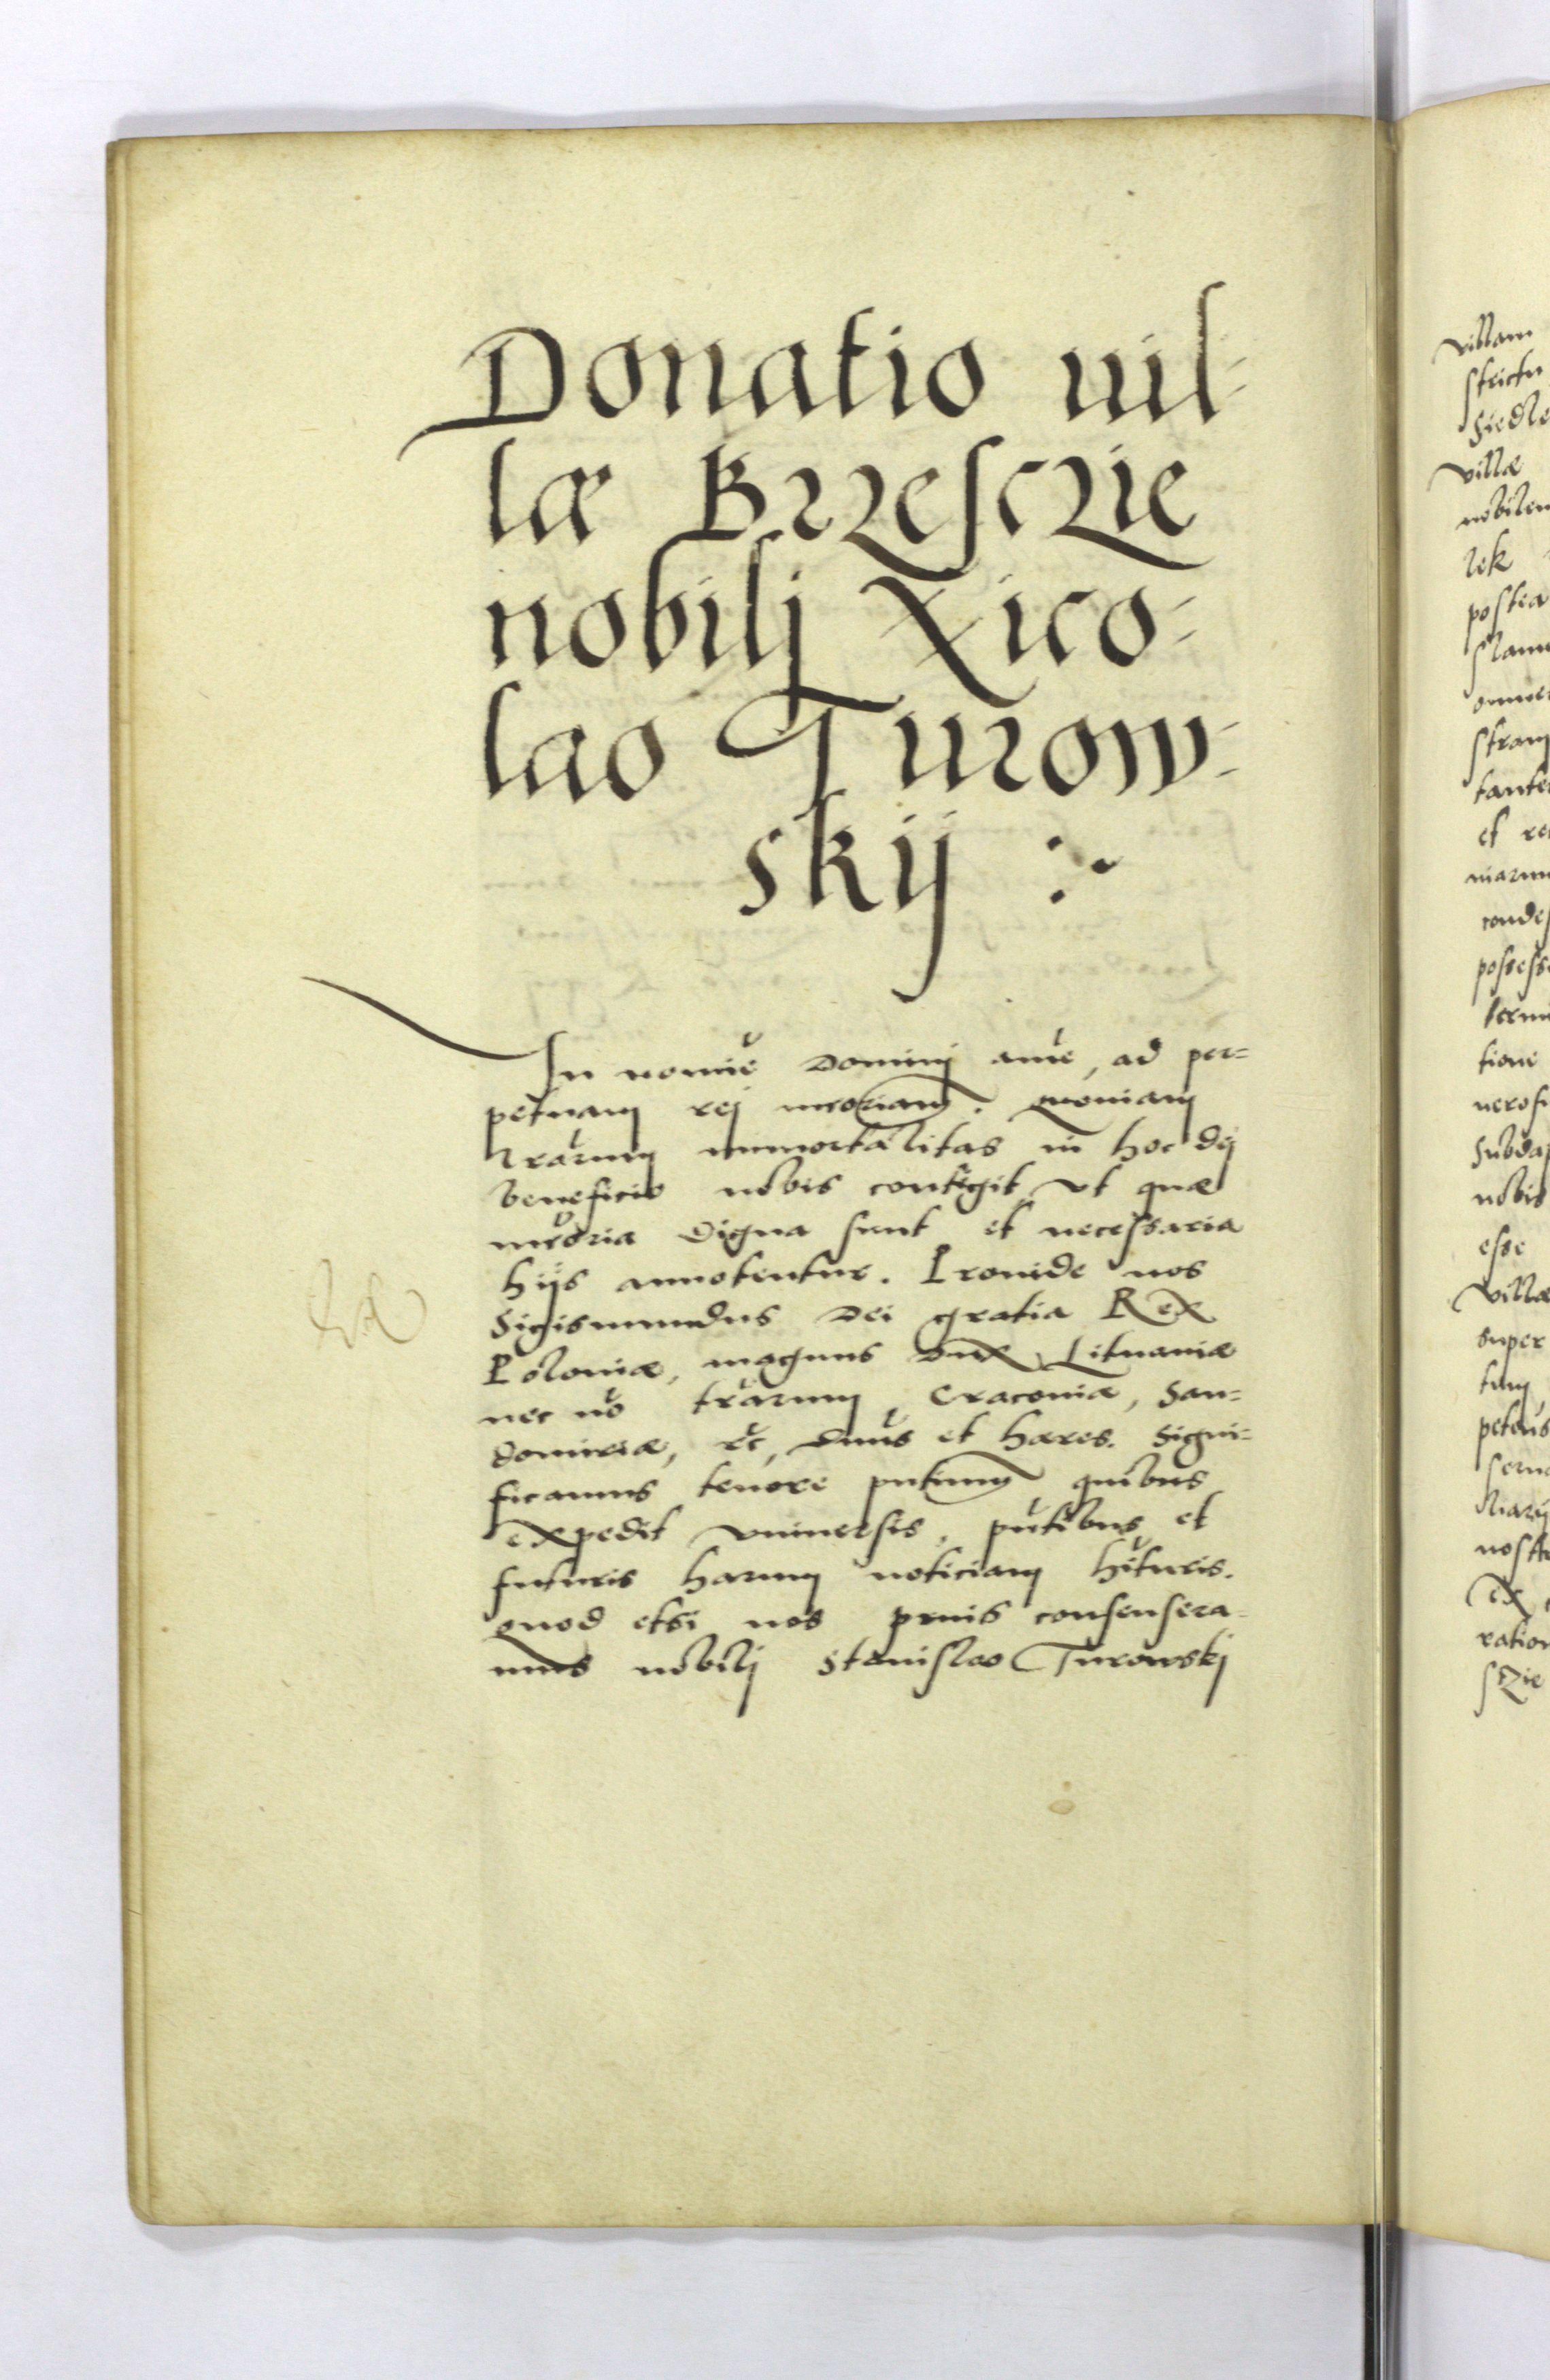 Donatio uil-
læ Brzesczie
nobilj Nico-
lao Turow-
skij :~
In nomine Dominj ame, ad per=
petuam rej mroriam. quoniam
lrarum immortalitas in hoc dej
beneficio nobis contigit ut quæ
mroria digna sunt et necessaria
hijs annotentur. Proinde nos
Sigismundus Dei gratia Rex
Poloniæ, magnus Dux Lituaniæ
nec no trarum, Cracoviæ, San=
domiriæ, etc, Dnus et hæres. Signi=
ficamus tenore pntium quibus
expedit universis, pntibus et
futuris harum noticiam hituris.
quod etsi nos prius consensera-
mus nobilj Stanislao Turowskj
villam
strictu
Siedle
villæ
nobilem
lek
postea
slam
omnes
stram
tante
et re
niarum
condes
possess
termi
tione
nerosi
Subda
nobis
esse
villæ
super
tum
petens
serua
liarij
nostr
ex
ration
sczie